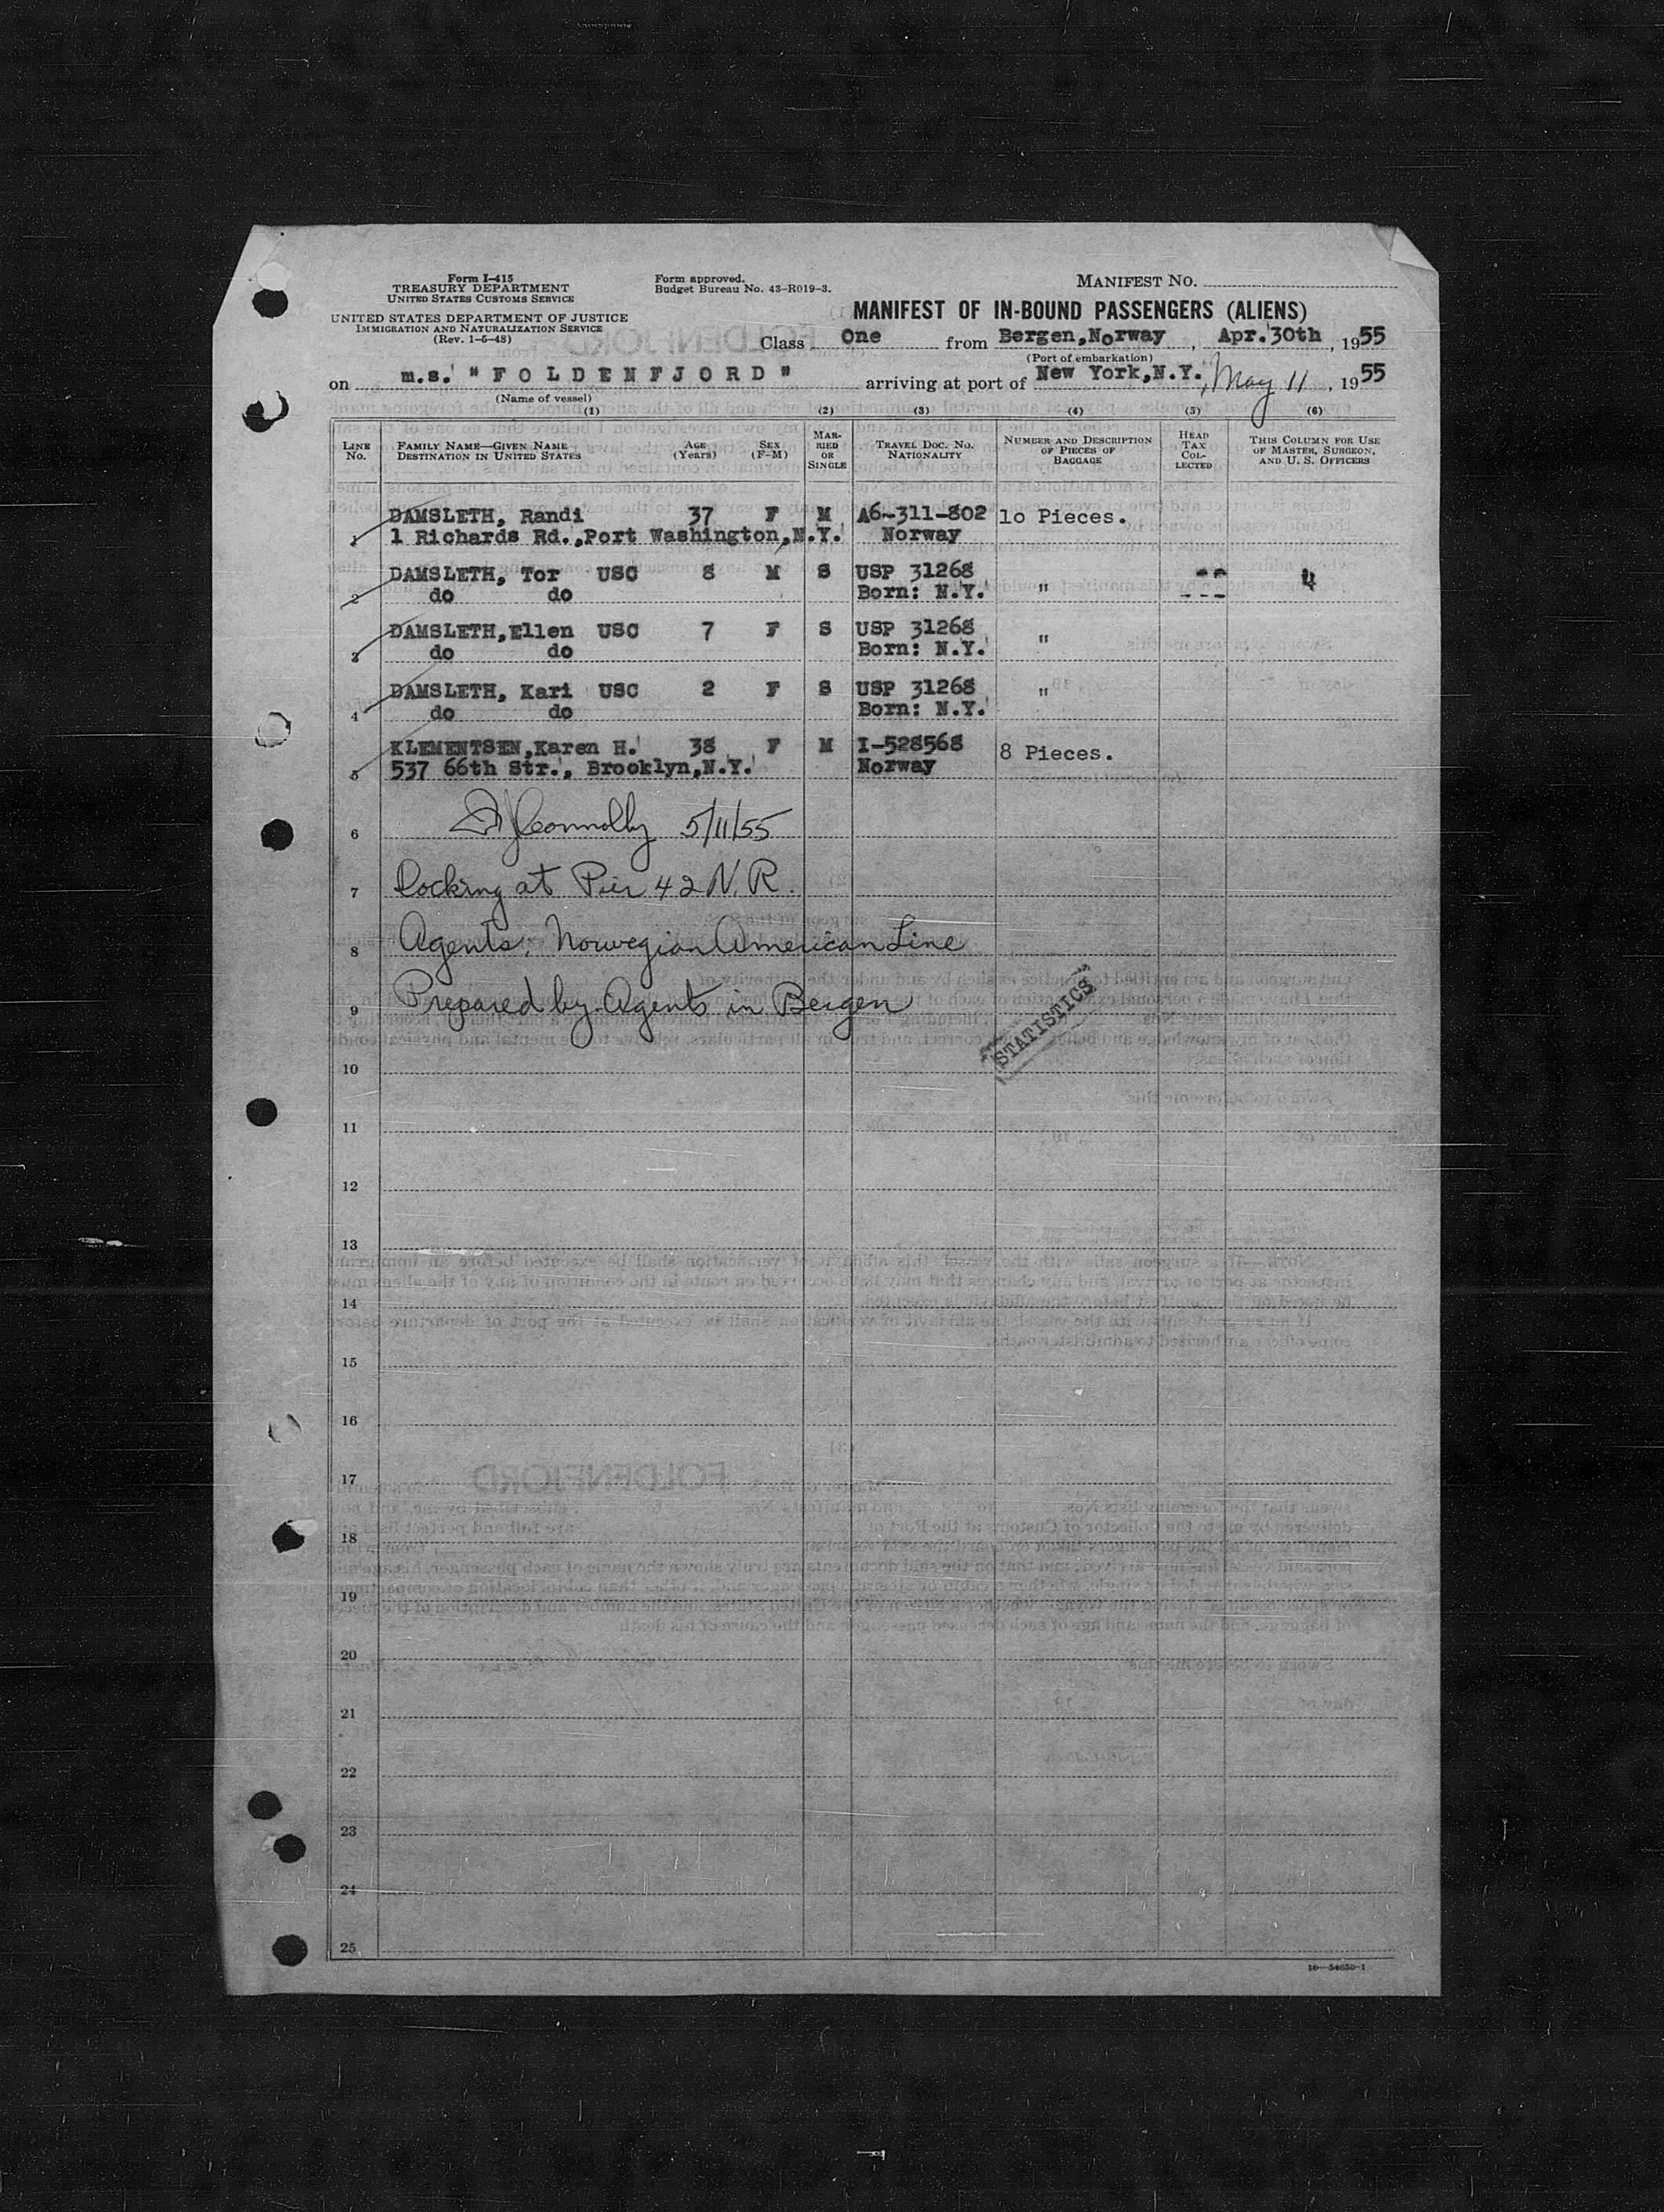 Form I-415
TREASURY DEPARTMENT
UNITED STATES CUSTOMS SERVICE
UNITED STATES DEPARTMENT OF JUSTICE
IMMIGRATION AND NATURALIZATION SERVICE
(Rev. 1-5-48)
Form approved.
Budget Bureau No. 43-R019-3.
MANIFEST NO.
MANIFEST OF IN-BOUND PASSENGERS (ALIENS)
Class One from Bergen,Norway, Apr.30th, 1955
(Port of embarkation)
on m.s. "FOLDENFJORD" arriving at port of New York,N.Y., May 11, 1955
(Name of vessel)
(1) (2) (3) (4) (5) (6)
LINE No. FAMILY NAME—GIVEN NAME DESTINATION IN UNITED STATES AGE (Years) SEX (F-M) MARRIED OR SINGLE TRAVEL DOC. NO. NATIONALITY NUMBER AND DESCRIPTION OF PIECES OF BAGGAGE HEAD TAX COLLECTED THIS COLUMN FOR USE OF MASTER, SURGEON, AND U. S. OFFICERS
DAMSLETH, Randi 37 F M A6-311-802 10 Pieces.
1 1 Richards Rd.,Port Washington,N.Y. Norway
DAMSLETH, Tor USC 8 M S USP 31268 -- 4
2 do do Born: N.Y. " ---
DAMSLETH,Ellen USC 7 F S USP 31268
3 do do Born: N.Y. "
DAMSLETH, Kari USC 2 F S USP 31268 "
4 do do Born: N.Y.
KLEMENTSEN,Karen H. 38 F M I-528568 8 Pieces.
5 537 66th Str., Brooklyn,N.Y. Norway
6 Connolly 5/11/55
7 Docking at Pier 42 N.R.
8 Agents: Norwegian American Line
9 Prepared by Agents in Bergen
STATISTICS
10
11
12
13
14
15
16
17
18
19
20
21
22
23
24
25
16—54650-1